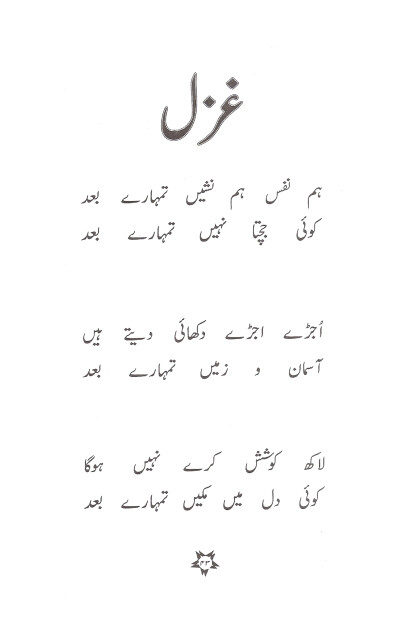 غزل
ہم نفس ہم نشیں تمہارے بعد
کوئی جچتا نہیں تمہارے بعد
اُجڑے اجڑے دکھائی دیتے ہیں
آسمان و زمیں تمہارے بعد
لاکھ کوشش کرے نہیں ہوگا
کوئی دل میں مکیں تمہارے بعد
۴۳